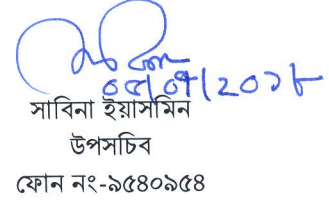 ০৫/০৭/২০১৮
সাবিনা ইয়াসমিন
উপসচিব
ফোন নং-৯৫৪০৯৫৪